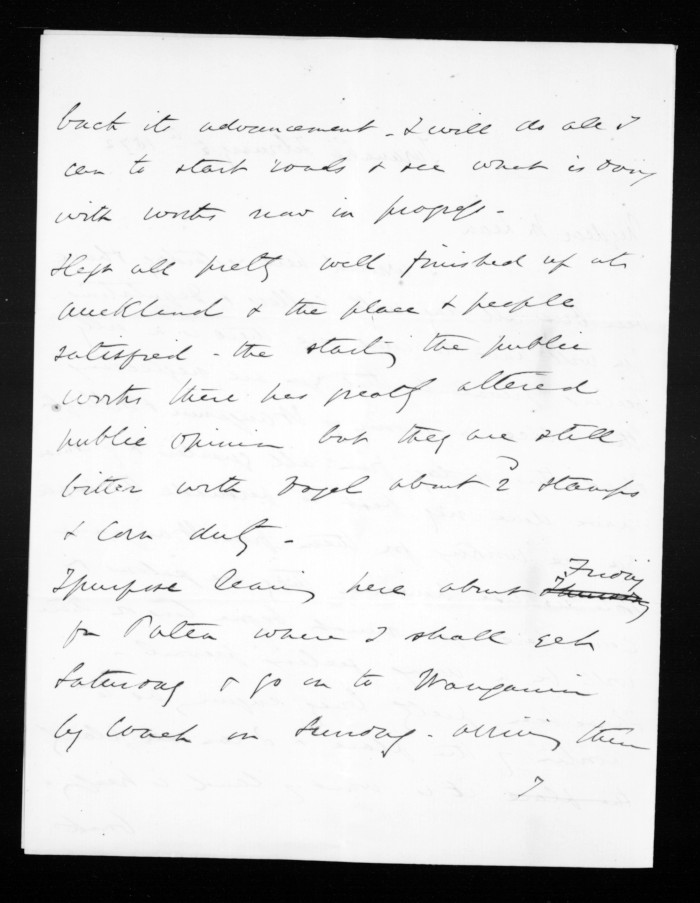 back its advancement - I will do all I
can to start roads & see what is doing
with works now in progress -
I left all pretty well finished up at
Auckland & the place & people
satisfied - the starting the public
works there has greatly altered
public opinion but they are still
bitter with Vogel about 2d stamps
& Corn duty -
I purpose leaving here about Friday
for Patea where I shall get
Saturday & go on to Wanganui
by Coach on Sunday - arriving there